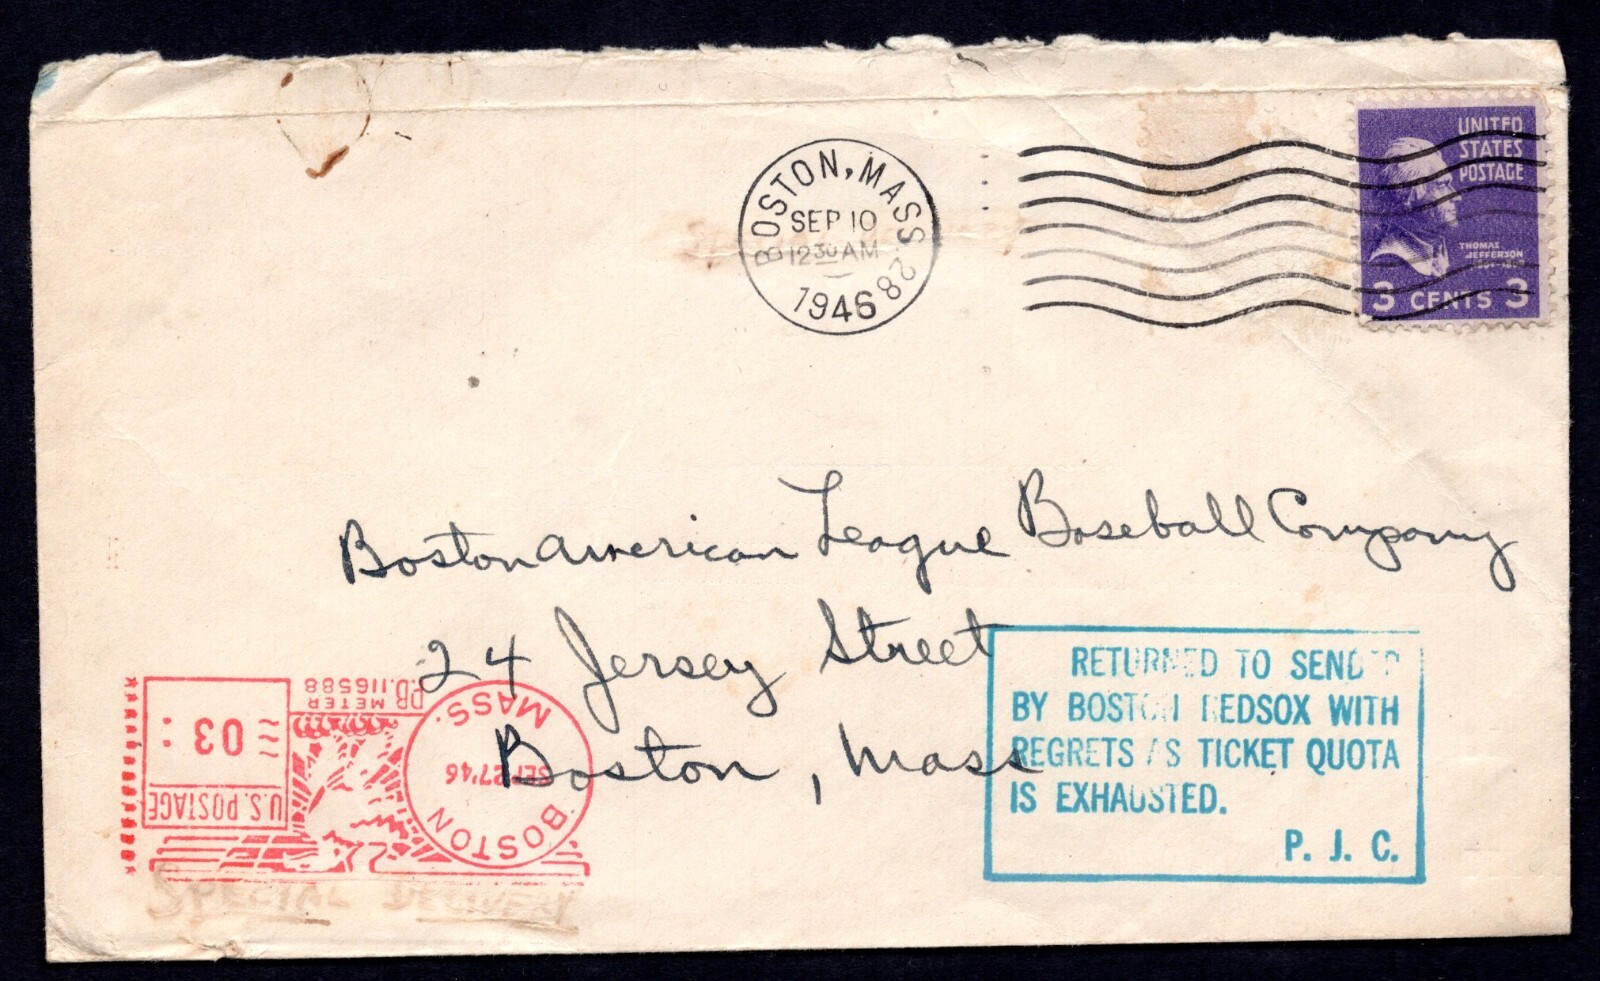 BOSTON, MASS 28
SEP 10
12 30 AM
1946
UNITED
STATES
POSTAGE
THOMAS
JEFFERSON
3 CENTS 3
Boston American League Baseball Company
24 Jersey Street
Boston, Mass
RETURNED TO SENDER
BY BOSTON REDSOX WITH
REGRETS AS TICKET QUOTA
IS EXHAUSTED.
P. J. C.
BOSTON
SEP 27 '46
MASS.
U.S. POSTAGE
03
PB METER
P.B. 116588
SPECIAL DELIVERY